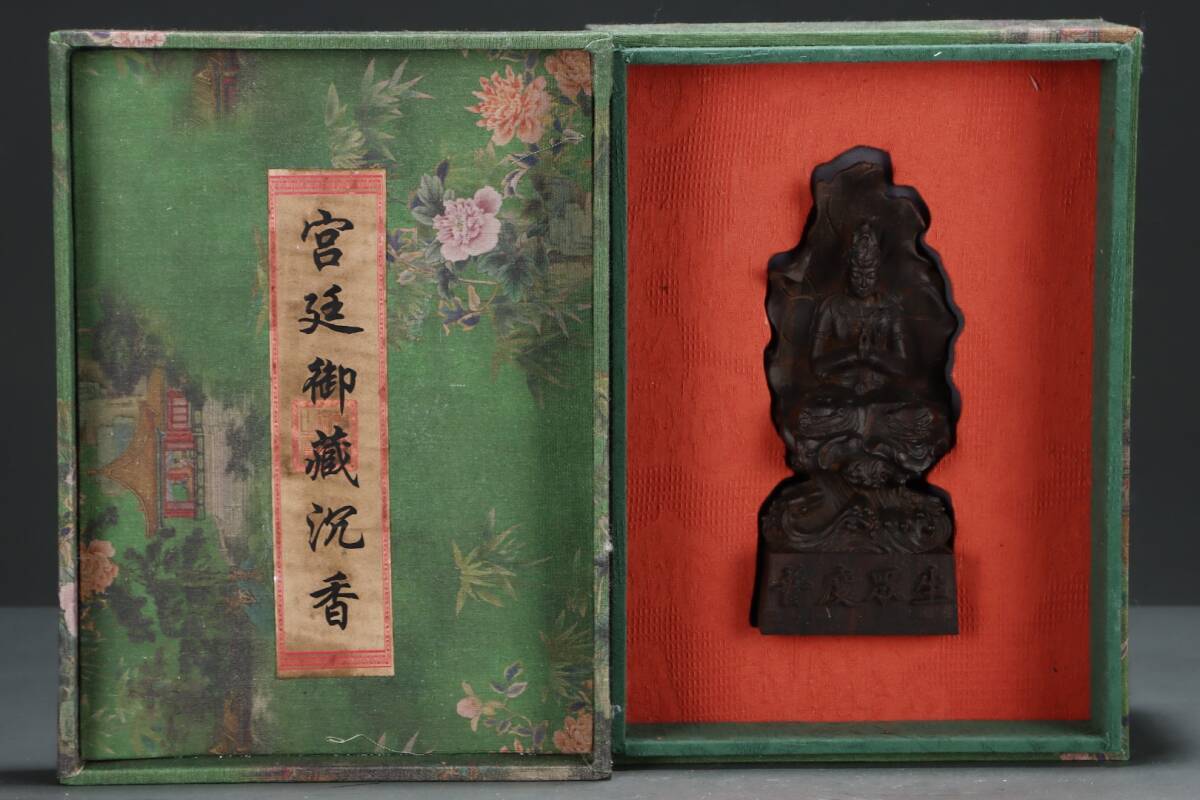 宫廷御藏沉香
普度眾生